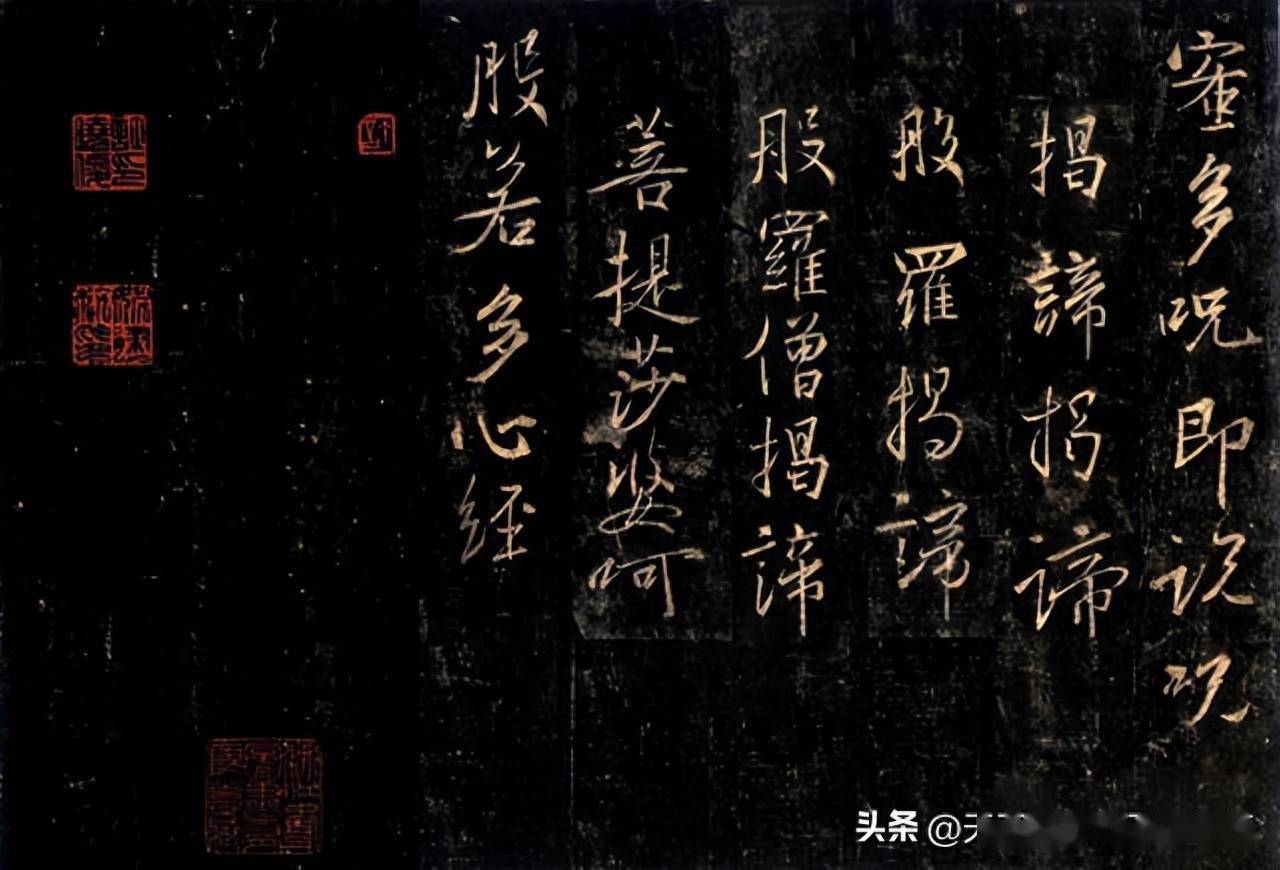 蜜多呪即說呪
揭諦揭諦
般羅揭諦
般羅僧揭諦
菩提莎婆呵
般若多心經
头条 @